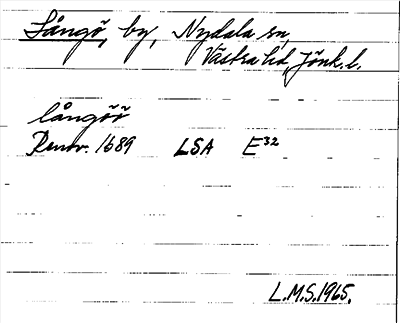 Långö, by, Nydala sn,
Västra hd, Jönk. l.
långöö
Renov. 1689 LSA E32
L.M.S. 1965.